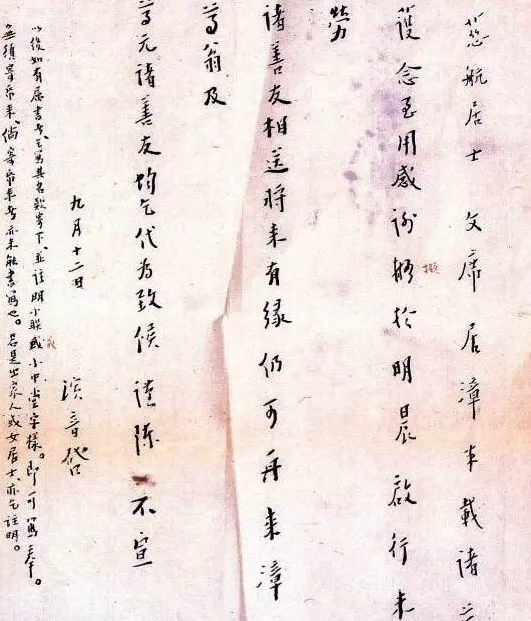 慈航居士 文席居漳半載諸
護念至用感謝擬於明晨啟行未
擬
勞
諸善友相送將來有緣仍可再來漳
尊翁及
尊元諸善友均乞代為致候謹陳不宣
九月十二日
演音啓
以後如有屬書者乞寫其名款寄下並註明小聯或小中堂字樣。即可寫奉。
無須寄紙來、倘寄紙來者亦未能書寫也。若是出家人或女居士、亦乞註明。